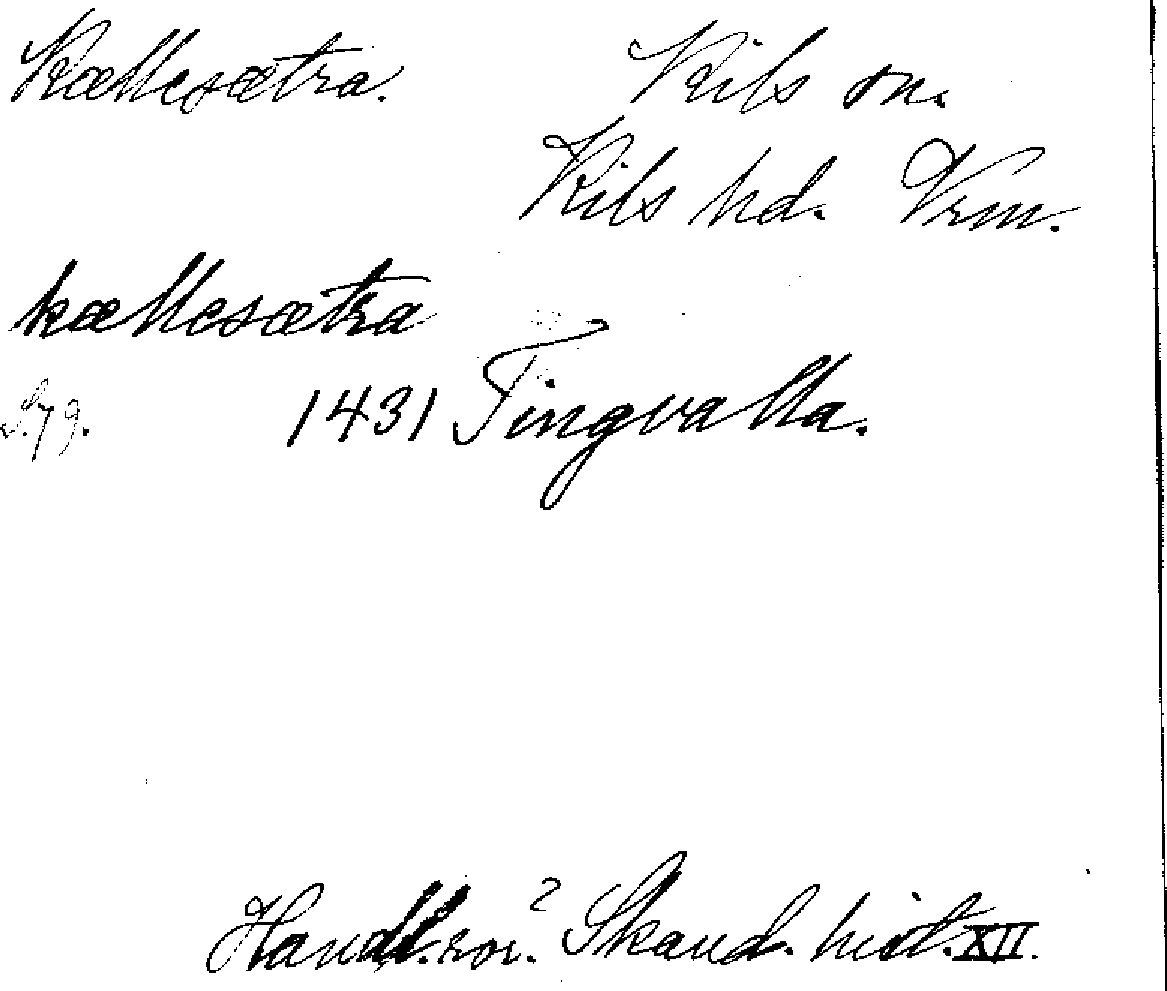 Kællesætra. Kils sn.
Kils hd. Vrm.
kællesætra
S. 79. 1431 Tingvalla.
Handl. rör. 2 Skand. hist. XII.